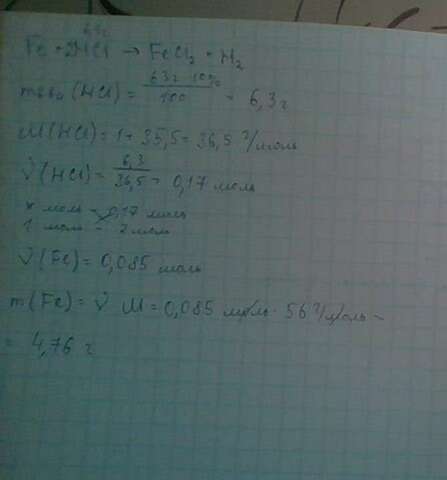 63г
Fe + 2HCl → FeCl₂ + H₂
m в-ва (HCl) = 63г · 10% / 100 = 6,3г
M(HCl) = 1 + 35,5 = 36,5 г/моль
ν(HCl) = 6,3 / 36,5 = 0,17 моль
x моль – 0,17 моль
1 моль – 2 моль
ν(Fe) = 0,085 моль
m(Fe) = ν · M = 0,085 моль · 56 г/моль =
= 4,76 г